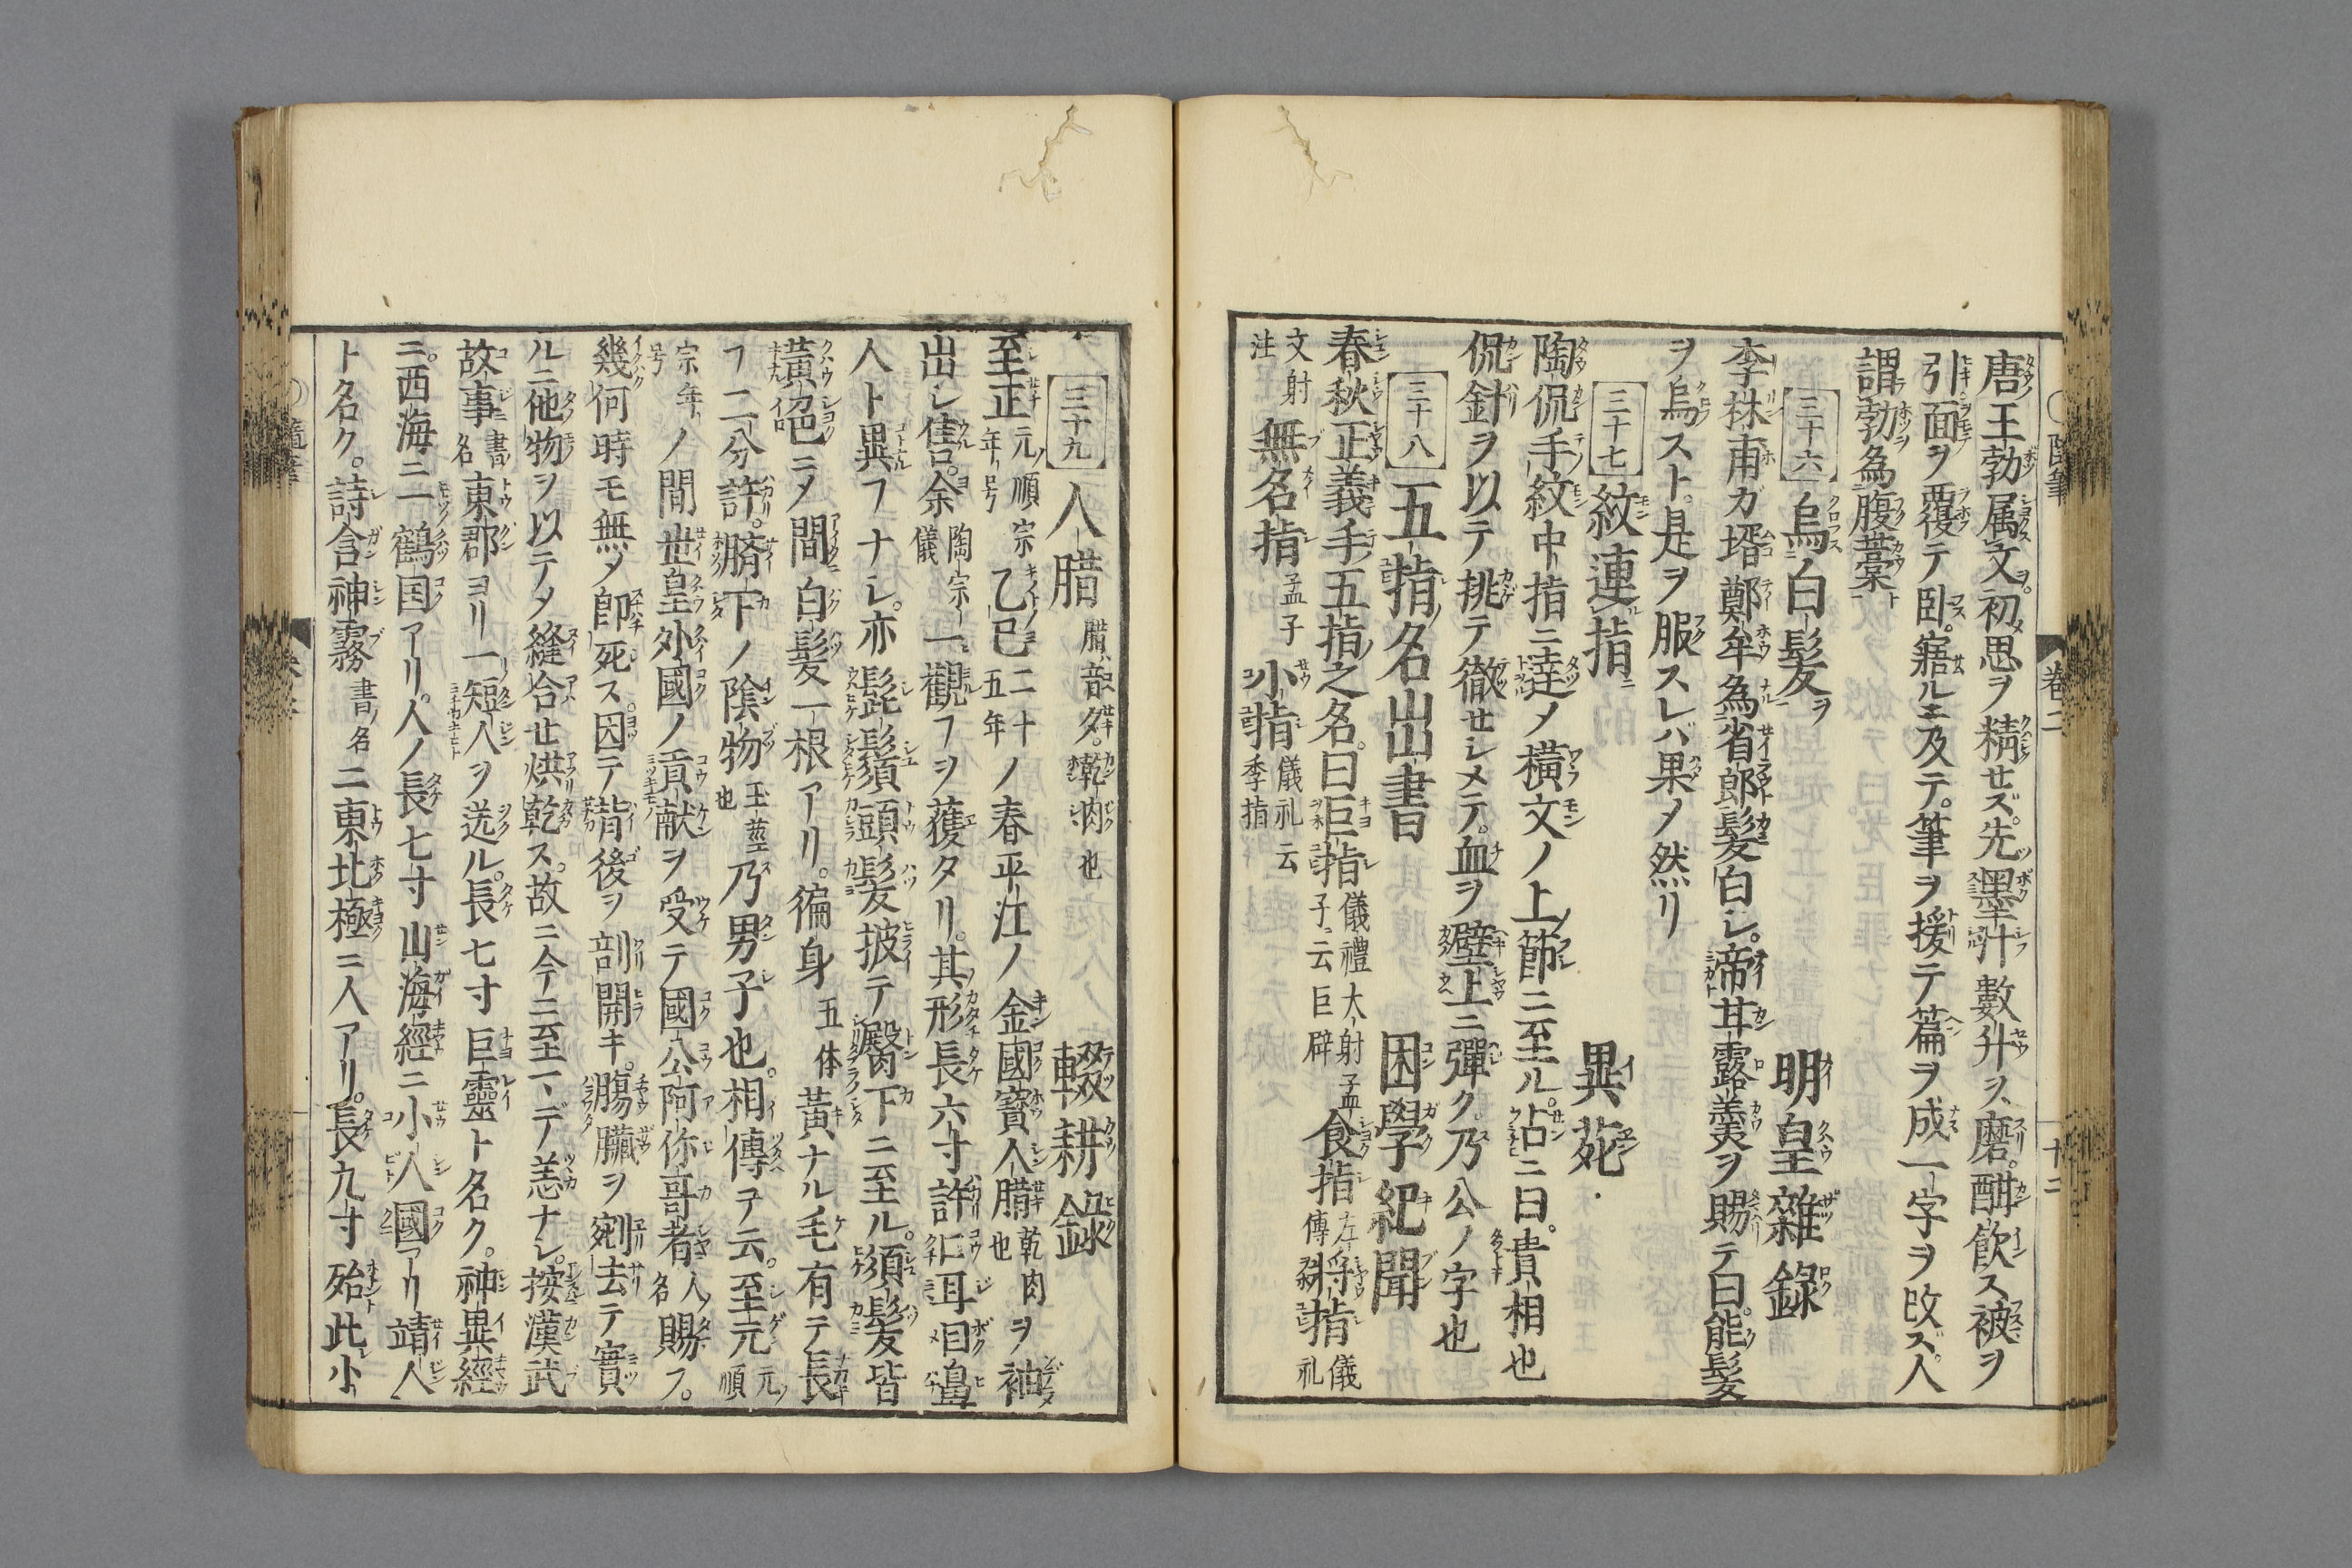 唐王勃属文ヲ。初メ思ヲ精セズ。先墨汁數升ヲ磨。酣飲ス被ヲ
引面ヲ覆テ臥。寤ルニ及テ。筆ヲ援テ篇ヲ成一字ヲ改ズ人
謂勃為腹藁
三十六 烏白髮ヲ 明皇雜錄
李林甫ガ壻鄭牟為省郎髮白シ。帝耳露羹ヲ賜テ曰能髮
ヲ烏スト。是ヲ服スレバ果メ然リ
三十七 紋連指ニ 異苑
陶侃手紋中指ニ達メ橫文ノ上節ニ至ル。占ニ曰。貴相也
侃針ヲ以テ挑テ徹セシメテ。血ヲ壁上ニ彈ク。乃公ノ字也
三十八 五指名出書 困學紀聞
春秋正義手五指之名。曰巨指 儀禮大射孟子。云巨辟 食指 左傳 將指 儀礼
文射注 無名指 孟子 小指 儀礼云季指
三十九 人腊 腊韻夕。乾肉也 輟耕錄
至正 元順宗年号 乙巳 二十五年 ノ春平江ノ金國寶人腊 乾肉也 ヲ袖
出シ售。余 陶宗儀 一觀フヲ獲タリ。其形長六寸許口耳目鼻
人ト異フナシ。亦髭鬚頭髮披テ臀下ニ至ル。須髮皆
黃絕ニメ間白髮一根アリ。徧身 五体 黃ナル毛有テ長
フ二分許。臍下ノ陰物 玉莖也 乃男子也。相傳ヲ云。至元 元順
宗年号 ノ間世皇外國ノ貢献ヲ受テ國公阿你哥者 人ノ名 賜フ。
幾何時モ無メ即死ス因テ背後ヲ剖開キ。腸臟ヲ剜去テ實
ルニ他物ヲ以テメ縫合セ烘乾ス。故ニ今ニ至マデ恙ナシ。按漢武
故事 書名 東郡ヨリ一短人ヲ送ル。長七寸巨靈ト名ク。神異經
ニ。西海ニ一鶴国アリ。人ノ長七寸山海經ニ小人國アリ靖人
ト名ク。詩含神霧 書ノ名 ニ東北極ニ人アリ。長九寸殆此小
卷二
十二